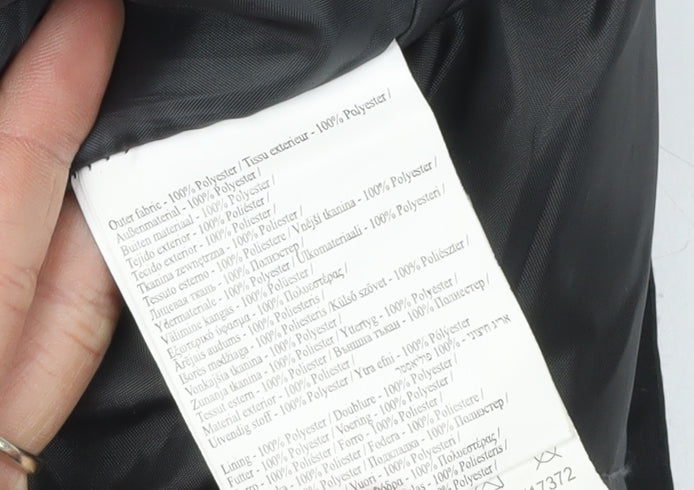 Outer fabric - 100% Polyester / Tissu exterieur - 100% Polyester /
Außenmaterial - 100% Polyester /
Buiten materiaal - 100% Polyester /
Tejido exterior - 100% Poliéster /
Tecido exterior - 100% Poliéster /
Tkanina zewnętrzna - 100% Poliester /
Tessuto esterno - 100% Poliestere / Vnější tkanina - 100% Polyester /
Лицевая ткань - 100% Полиэстер /
Ydermateriale - 100% Polyester / Ulkomateriaali - 100% Polyesteri /
Välimine kangas - 100% Polüester /
Εξωτερικό ύφασμα - 100% Πολυεστέρας /
Ārējais audums - 100% Poliesters /
Išorės medžiaga - 100% Poliesteris / Külső szövet - 100% Poliészter /
Vonkajšia tkanina - 100% Polyester /
Zunanja tkanina - 100% Poliester / Yttertyg - 100% Polyester /
Tesut estern - 100% Poliester / Външна тъкан - 100% Полиестер /
Material exterior - 100% Poliester /
Utvendig stoff - 100% Polyester / Ytra efni - 100% Pólýester
אריג חיצוני - 100% פוליאסטר
Lining - 100% Polyester / Doublure - 100% Polyester /
Futter - 100% Polyester / Voering - 100% Polyester /
Forro - 100% Poliéster /
Fodera - 100% Poliestere /
Подкладка - 100% Полиэстер /
Vuori - 100% Polyesteri /
100% Πολυεστέρας /
100% Poliesteris /
17372